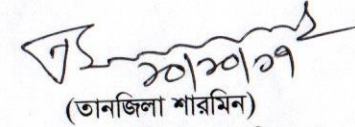 ১০/১০/১৭
(তানজিলা শারমিন)